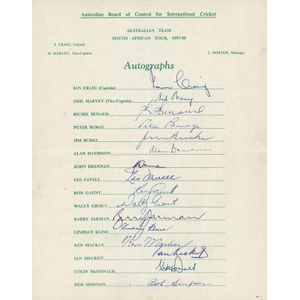 Australian Board of Control for International Cricket
AUSTRALIAN TEAM
SOUTH AFRICAN TOUR, 1957-58
I. CRAIG, Captain
N. HARVEY, Vice-Captain
J. NORTON, Manager
Autographs
IAN CRAIG (Captain) Ian Craig
NEIL HARVEY (Vice-Captain) Neil Harvey
RICHIE BENAUD R Benaud
PETER BURGE Peter Burge
JIM BURKE Jim Burke
ALAN DAVIDSON Alan Davidson
JOHN DRENNAN Drennan
LES FAVELL Les Favell
RON GAUNT Ron Gaunt
WALLY GROUT Wally Grout
BARRY JARMAN Barry Jarman
LINDSAY KLINE Lindsay Kline
KEN MACKAY Ken Mackay
IAN MECKIFF Ian Meckiff
COLIN McDONALD
BOB SIMPSON Bob Simpson